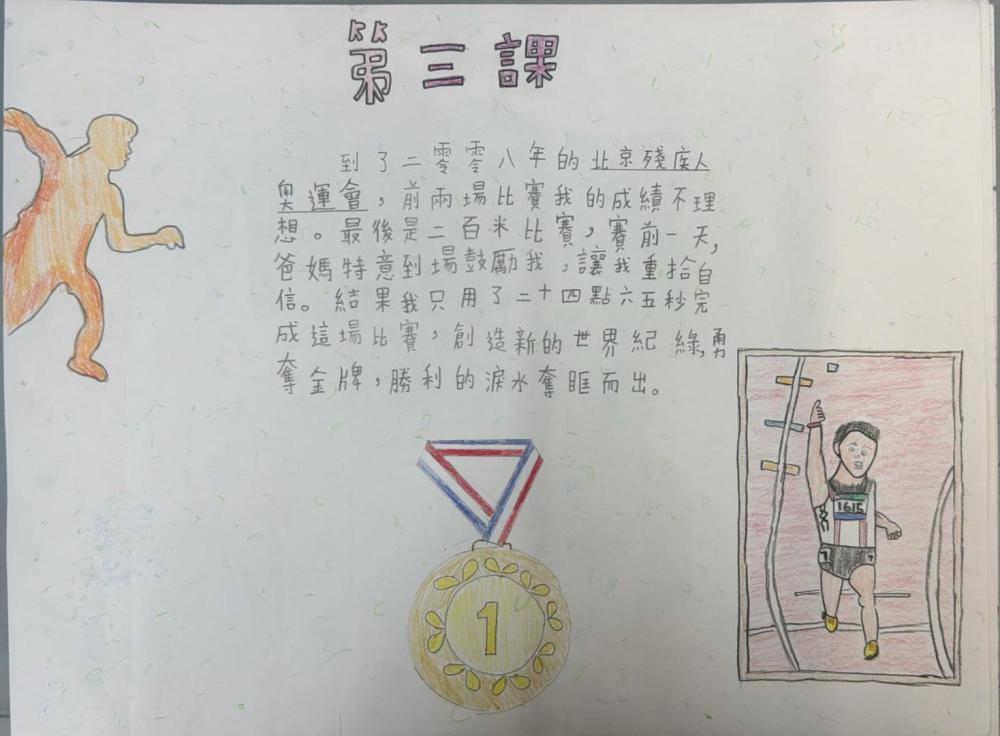 第三課
到了二零零八年的北京殘疾人
奧運會，前兩場比賽我的成績不理
想。最後是二百米比賽，賽前一天，
爸媽特意到場鼓勵我，讓我重拾自
信。結果我只用了二十四點六五秒完
成這場比賽，創造新的世界紀綠，勇
奪金牌，勝利的淚水奪眶而出。
1615
1